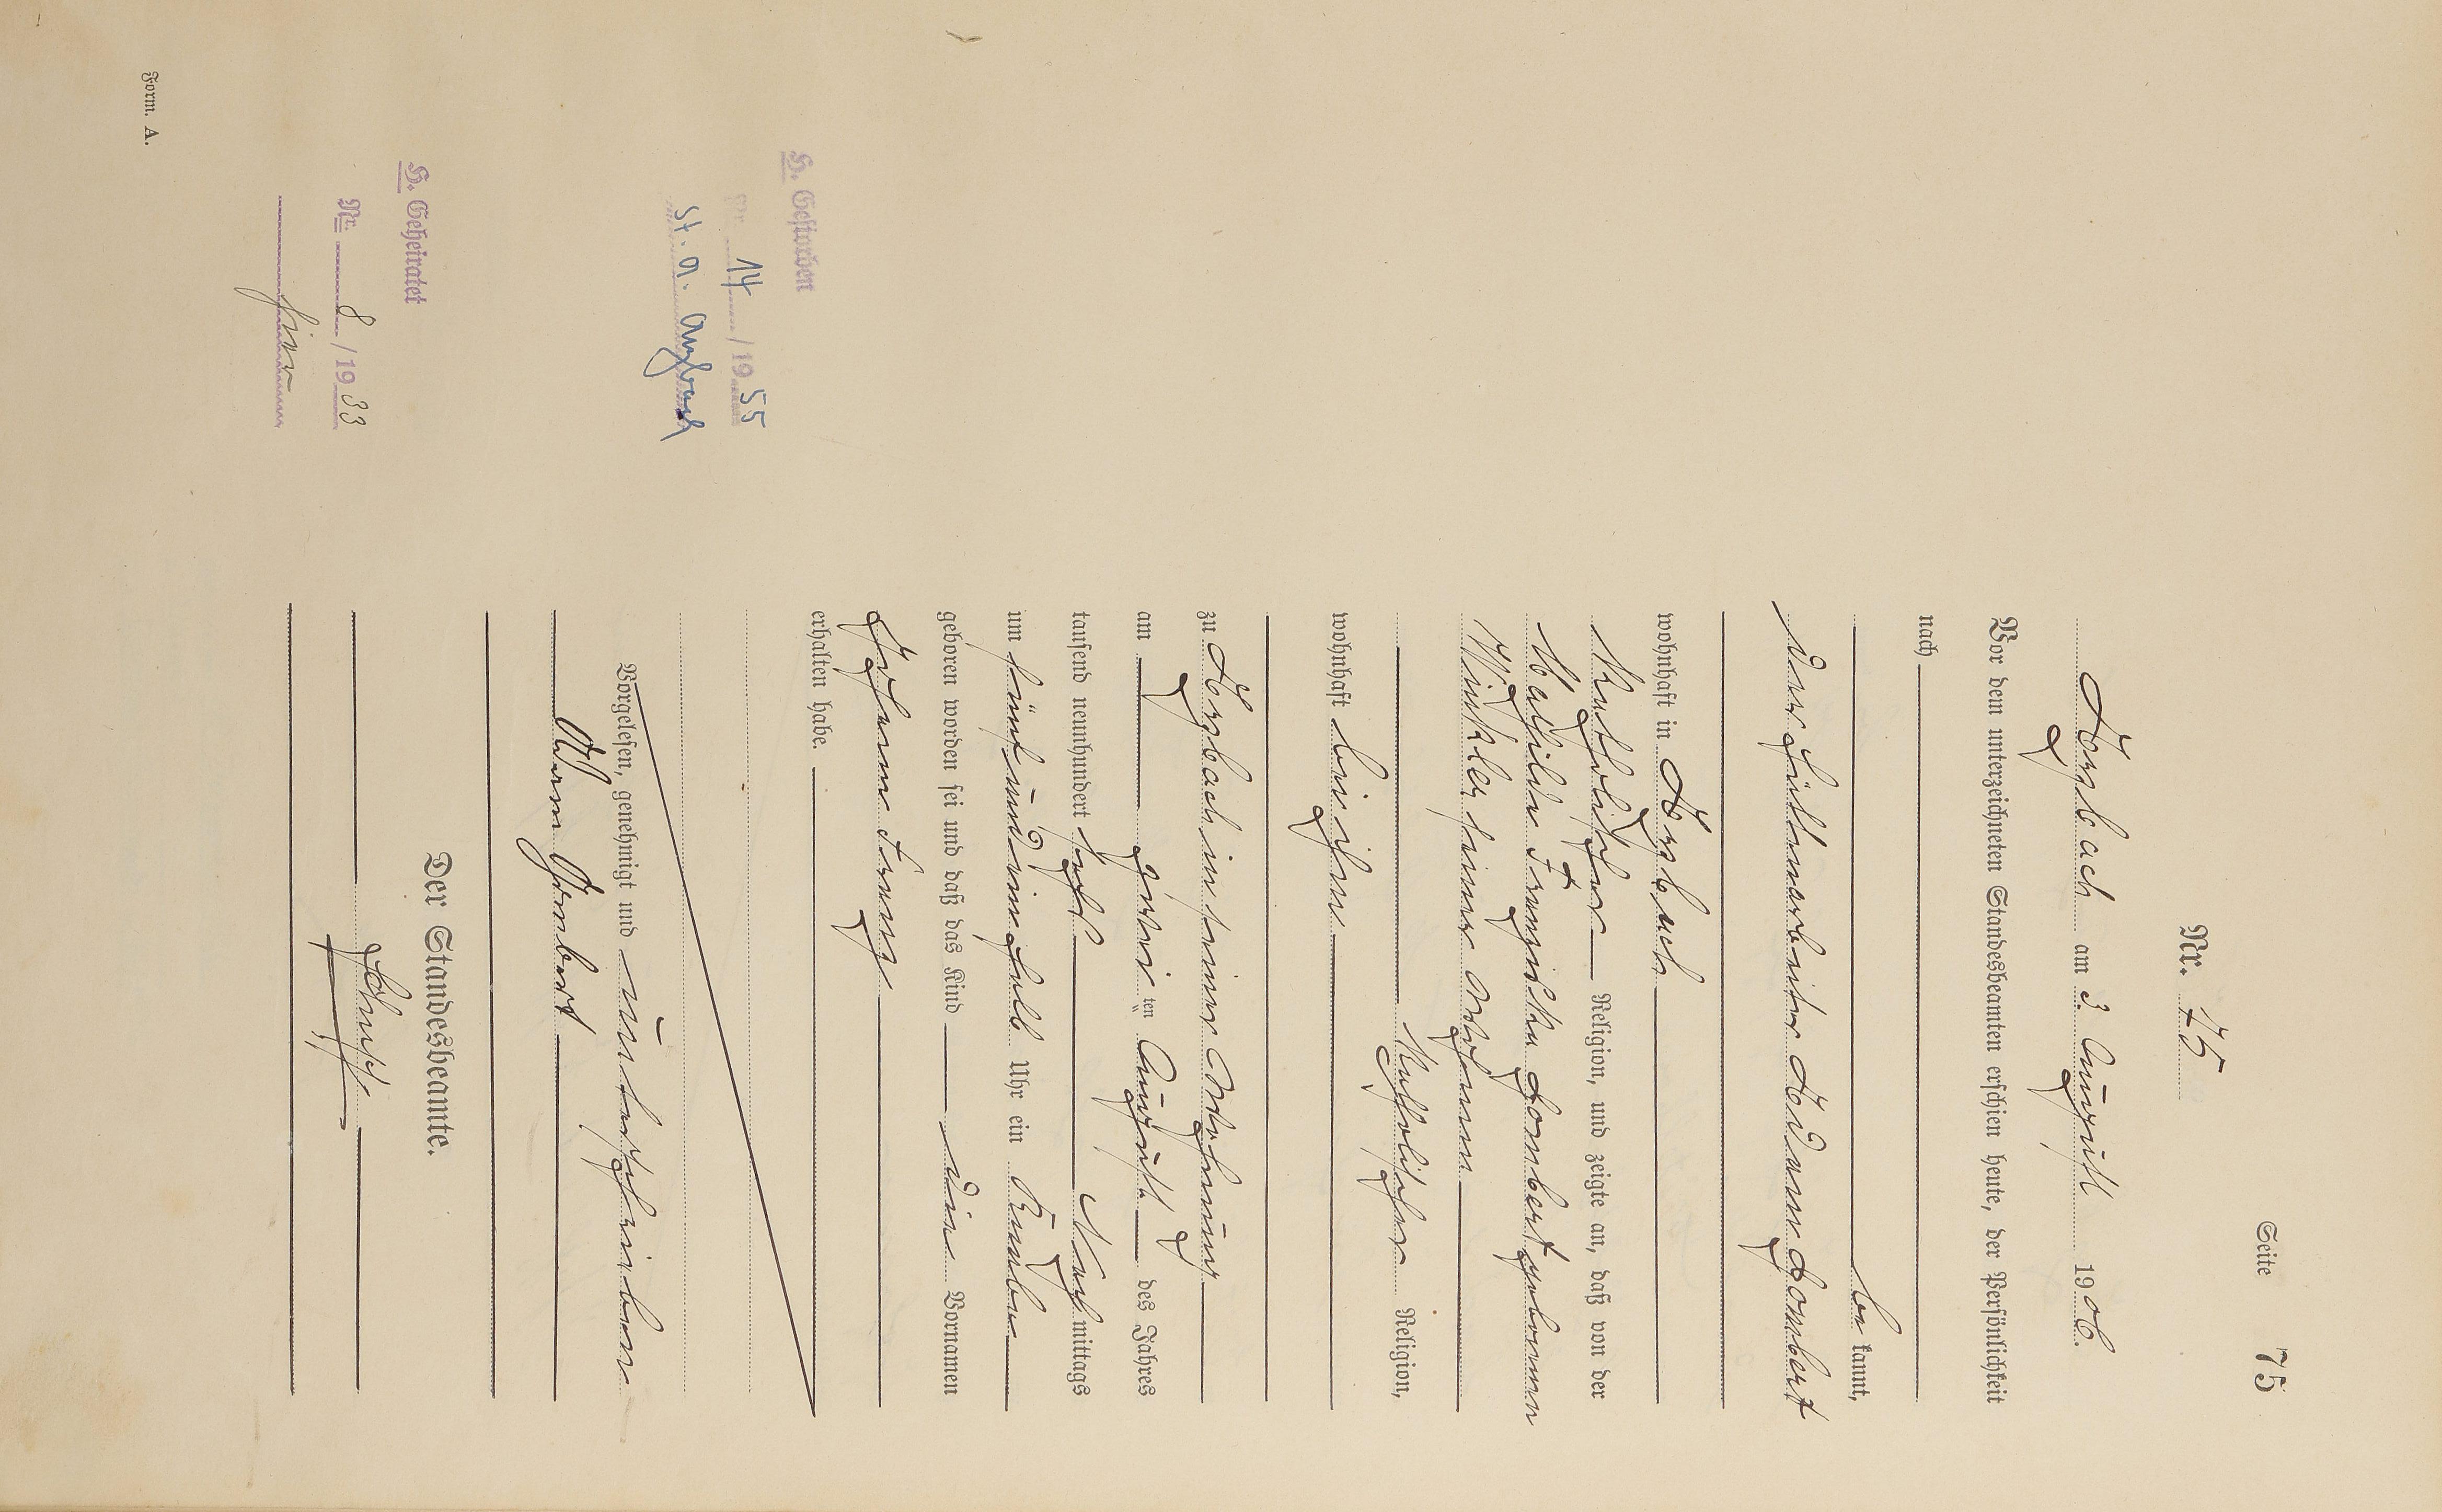 Seite 75
Nr. 75
am 3. August 1906.
Vor dem unterzeichneten Standesbeamten erschien heute, der Persönlichkeit
nach
be kannt,
der Hüttenarbeiter Adam Gombert
wohnhaft in
katholischer Religion, und zeigte an, daß von der
Mathilde Franziska Gombert geborenen
Winkler seiner Ehefrau
katholischer Religion,
wohnhaft bei ihm
zu in seiner Wohnung
am zwei ten August des Jahres
tausend neunhundert sechs Nach mittags
um fünf und ein halb Uhr ein Knabe
geboren worden sei und daß das Kind die Vornamen
Johann Franz
erhalten habe.
Vorgelesen, genehmigt und unterschrieben
Adam Gombert
Der Standesbeamte.
H. Gestorben
Nr. 14 / 19 55
St. A.
H. Geheiratet
Nr. 8 / 19 33
hier
Form. A.